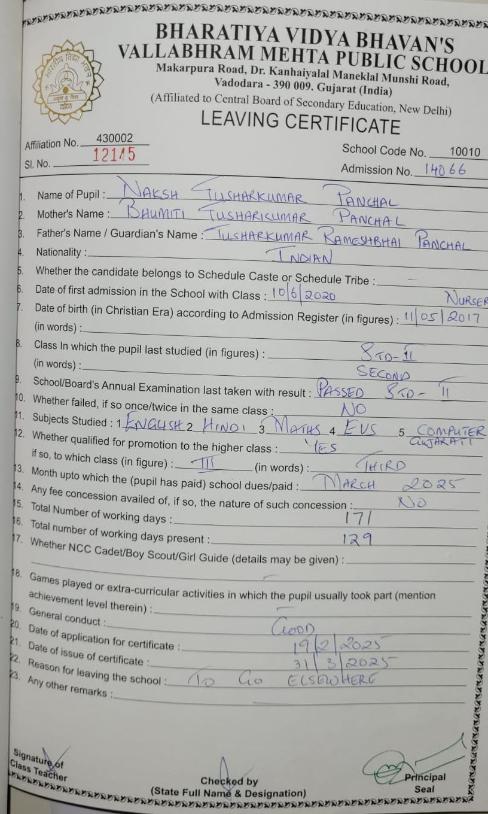 BHARATIYA VIDYA BHAVAN'S
VALLABHRAM MEHTA PUBLIC SCHOOL
Makarpura Road, Dr. Kanhaiyalal Maneklal Munshi Road,
Vadodara - 390 009. Gujarat (India)
(Affiliated to Central Board of Secondary Education, New Delhi)
LEAVING CERTIFICATE
Affiliation No. 430002 School Code No. 10010
Sl. No. 12145 Admission No. 14066
1. Name of Pupil : NAKSH TUSHARKUMAR PANCHAL
2. Mother's Name : BHUMITI TUSHARKUMAR PANCHAL
3. Father's Name / Guardian's Name : TUSHARKUMAR RAMESHBHAI PANCHAL
4. Nationality : INDIAN
5. Whether the candidate belongs to Schedule Caste or Schedule Tribe :
6. Date of first admission in the School with Class : 10/6/2020 NURSER
7. Date of birth (in Christian Era) according to Admission Register (in figures) : 11/05/2017
(in words) :
8. Class In which the pupil last studied (in figures) : STD-II
(in words) : SECOND
9. School/Board's Annual Examination last taken with result : PASSED STD-II
10. Whether failed, if so once/twice in the same class : NO
11. Subjects Studied : 1. ENGLISH 2. HINDI 3. MATHS 4. EVS 5. COMPUTER
GUJARATI
12. Whether qualified for promotion to the higher class : YES
if so, to which class (in figure) : III (in words) : THIRD
13. Month upto which the (pupil has paid) school dues/paid : MARCH 2025
14. Any fee concession availed of, if so, the nature of such concession : NO
15. Total Number of working days : 171
16. Total number of working days present : 129
17. Whether NCC Cadet/Boy Scout/Girl Guide (details may be given) :
18. Games played or extra-curricular activities in which the pupil usually took part (mention
achievement level therein) :
19. General conduct : GOOD
20. Date of application for certificate : 19/2/2025
21. Date of issue of certificate : 31/3/2025
22. Reason for leaving the school : TO GO ELSEWHERE
23. Any other remarks :
Signature of
Class Teacher
Checked by
(State Full Name & Designation)
Principal
Seal